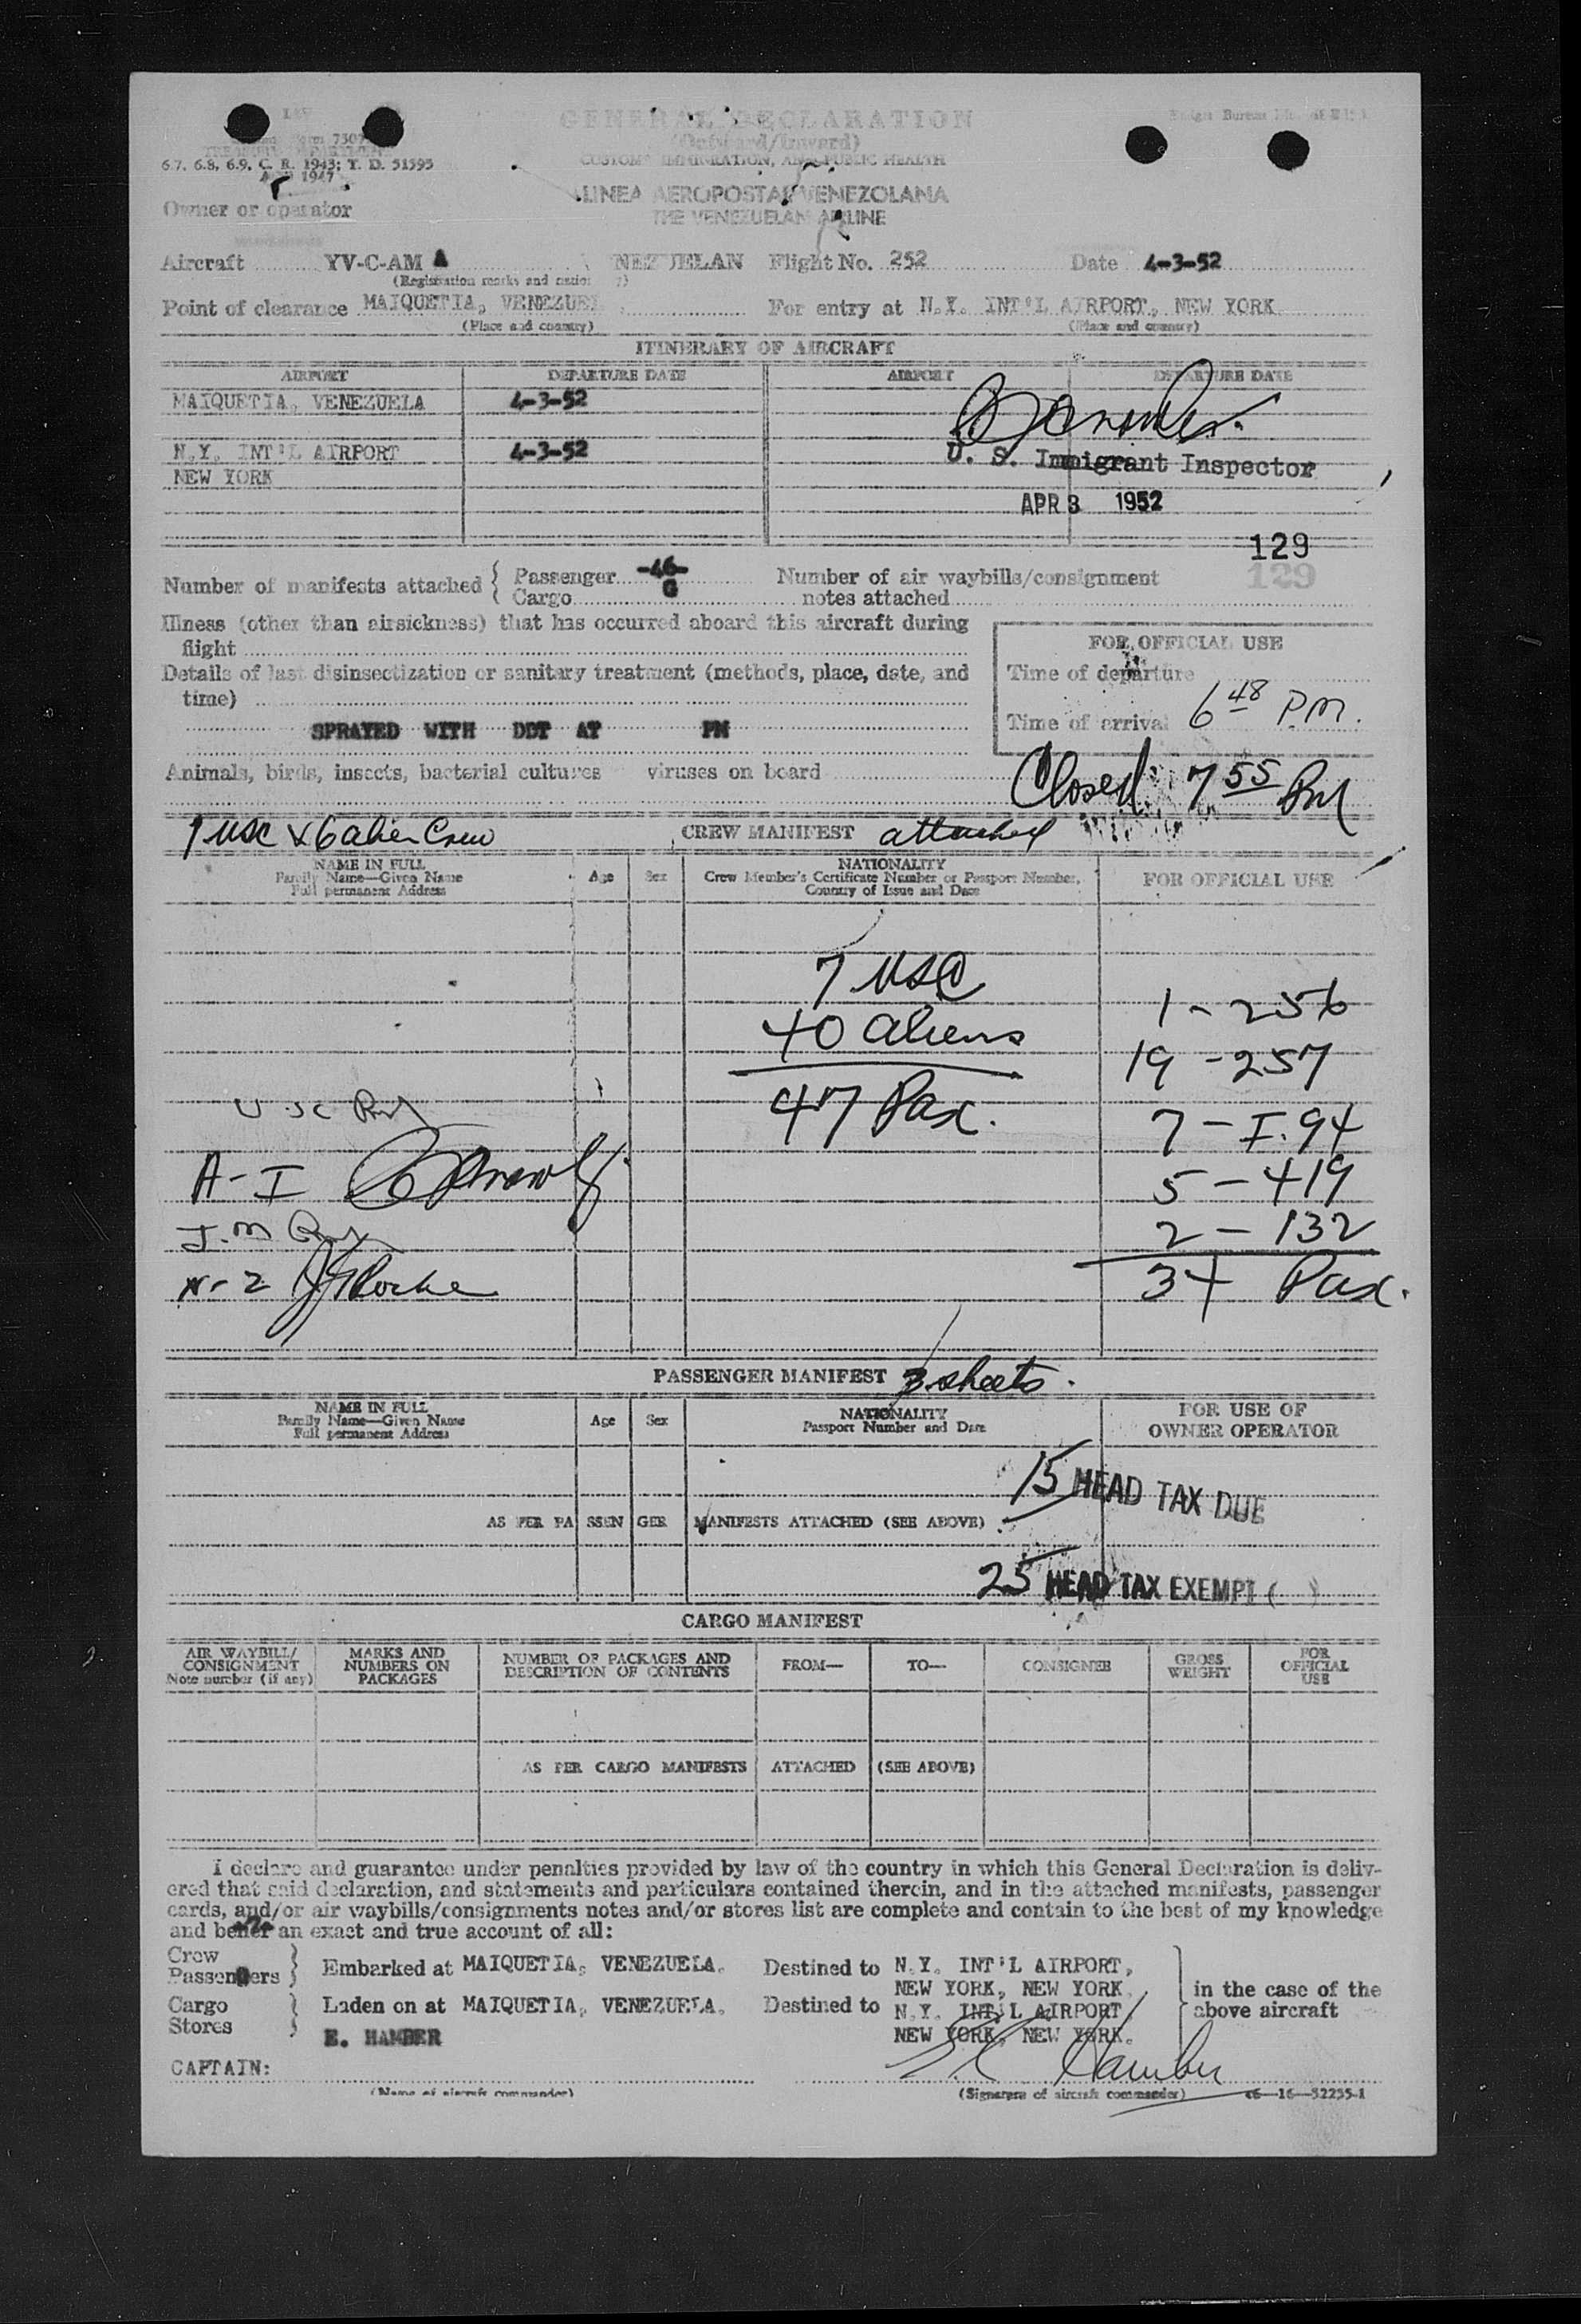 GENERAL DECLARATION
(Outward/Inward)
CUSTOMS, IMMIGRATION, AND PUBLIC HEALTH
6.7, 6.8, 6.9, C. R. 1943; T. D. 51595
1947
LINEA AEROPOSTAL VENEZOLANA
THE VENEZUELAN AIRLINE
Owner or operator
Aircraft YV-C-AM A NEZUELAN Flight No. 252 Date 4-3-52
Point of clearance MAIQUETIA, VENEZUEL For entry at N.Y. INT'L AIRPORT, NEW YORK
(Place and country) (Place and country)
ITINERARY OF AIRCRAFT
AIRPORT DEPARTURE DATE AIRPORT DEPARTURE DATE
MAIQUETIA, VENEZUELA 4-3-52
N.Y. INT'L AIRPORT 4-3-52
NEW YORK
U. S. Immigrant Inspector
APR 3 1952
129
129
Number of manifests attached { Passenger -46- Number of air waybills/consignment
Cargo notes attached
Illness (other than airsickness) that has occurred aboard this aircraft during
flight
FOR OFFICIAL USE
Details of last disinsectization or sanitary treatment (methods, place, date, and
time)
Time of departure
Time of arrival 6 48 P.M.
SPRAYED WITH DDT AT PM
Animals, birds, insects, bacterial cultures viruses on board
Closed 7 55 PM
1 USC & 6 alien Crew CREW MANIFEST attached
NAME IN FULL
Family Name—Given Name
Full permanent Address
Age Sex
NATIONALITY
Crew Member's Certificate Number or Passport Number,
Country of Issue and Date
FOR OFFICIAL USE
7 USC
40 aliens
47 Pax.
1 - 256
19 - 257
7 - I.94
5 - 419
2 - 132
34 Pax.
A-I
PASSENGER MANIFEST 3 sheets.
NAME IN FULL
Family Name—Given Name
Full permanent Address
Age Sex
NATIONALITY
Passport Number and Date
FOR USE OF
OWNER OPERATOR
15 HEAD TAX DUE
AS PER PASSENGER MANIFESTS ATTACHED (SEE ABOVE)
25 HEAD TAX EXEMPT ( )
CARGO MANIFEST
AIR WAYBILL/
CONSIGNMENT
Note number (if any)
MARKS AND
NUMBERS ON
PACKAGES
NUMBER OF PACKAGES AND
DESCRIPTION OF CONTENTS
FROM—
TO—
CONSIGNEE
GROSS
WEIGHT
FOR
OFFICIAL
USE
AS PER CARGO MANIFESTS ATTACHED (SEE ABOVE)
I declare and guarantee under penalties provided by law of the country in which this General Declaration is deliv-
ered that said declaration, and statements and particulars contained therein, and in the attached manifests, passenger
cards, and/or air waybills/consignments notes and/or stores list are complete and contain to the best of my knowledge
and belief an exact and true account of all:
Crew
Passengers } Embarked at MAIQUETIA, VENEZUELA. Destined to N.Y. INT'L AIRPORT,
NEW YORK, NEW YORK.
Cargo
Stores } Laden on at MAIQUETIA, VENEZUELA. Destined to N.Y. INT'L AIRPORT
NEW YORK, NEW YORK.
in the case of the
above aircraft
E. HAMBER
CAPTAIN:
(Name of aircraft commander) (Signature of aircraft commander) 16—52255-1